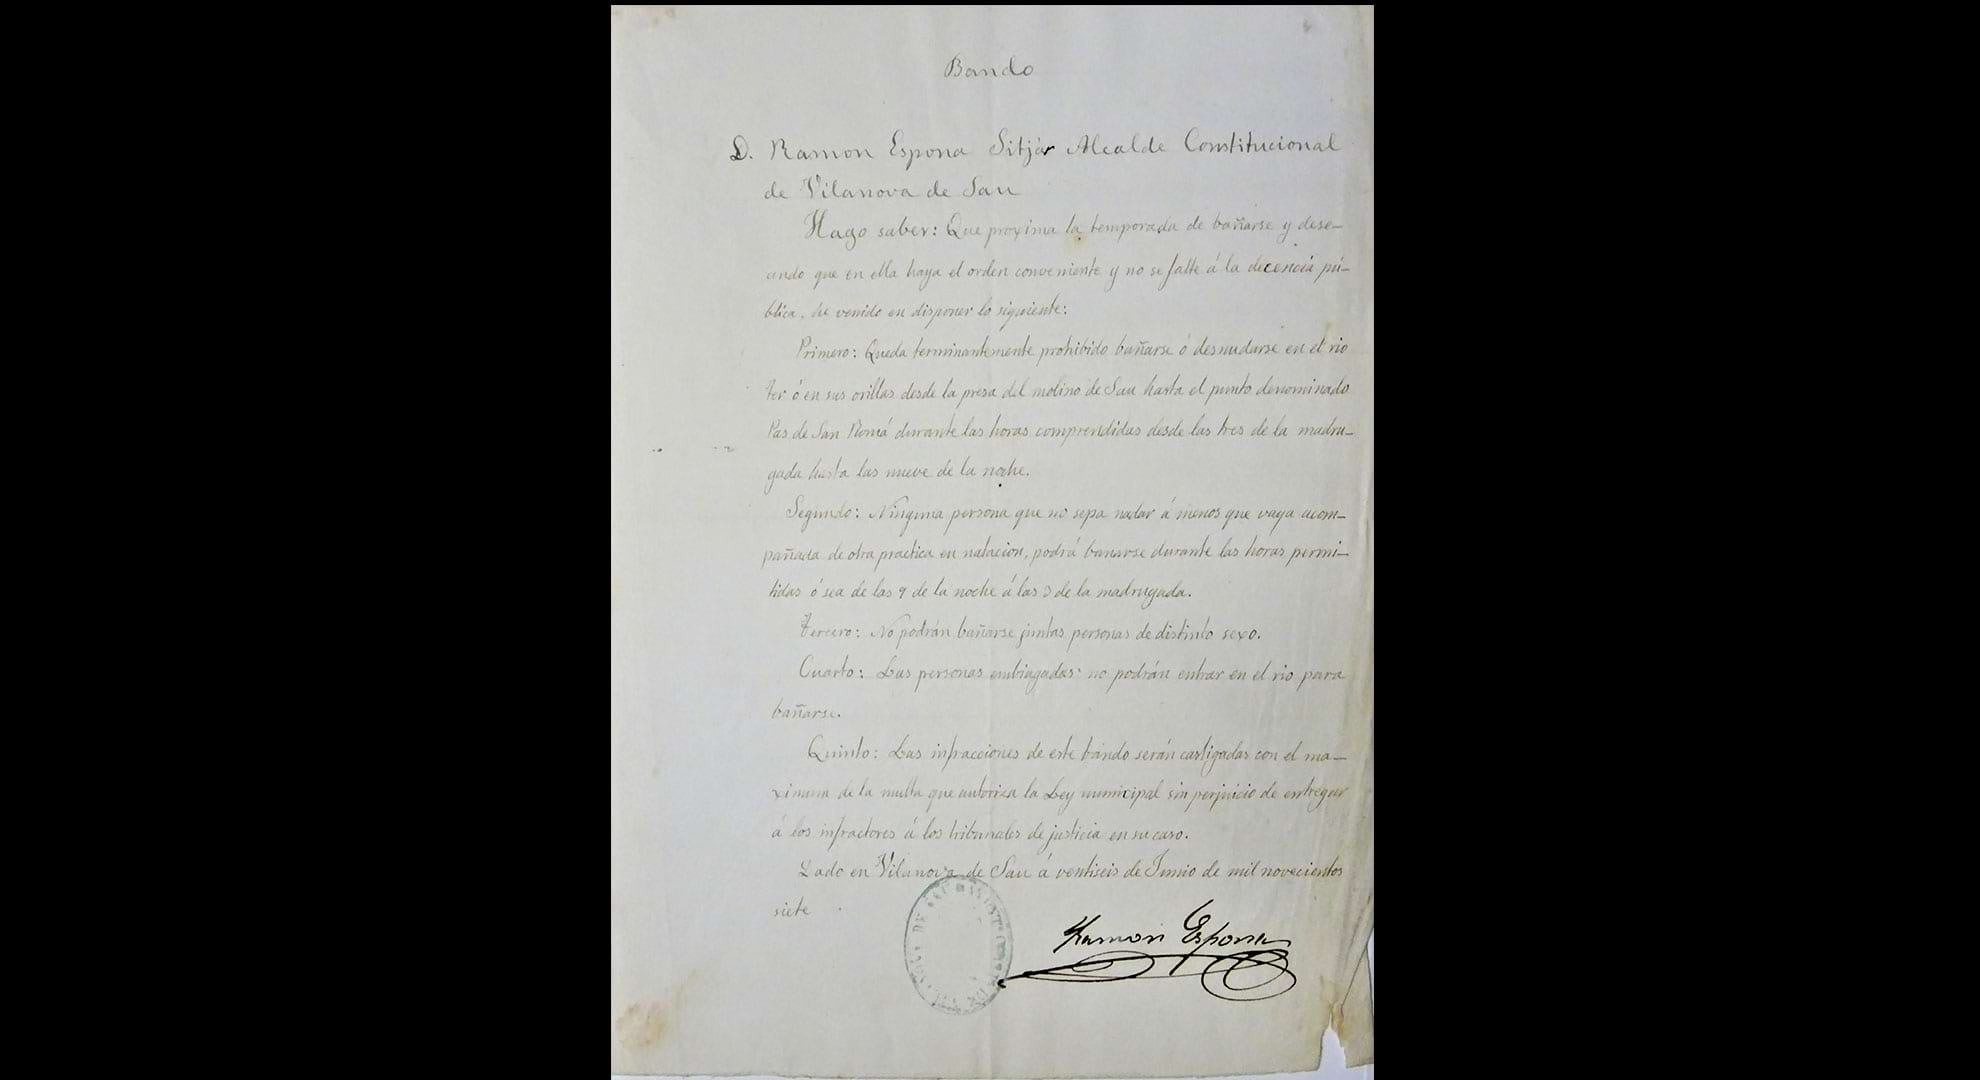 Bando
D. Ramon Espona Sitjár Alcalde Constitucional
de Vilanova de Sau
Hago saber: Que proxima la temporada de bañarse y dese-
ando que en ella haya el orden conveniente y no se falte á la decencia pú-
blica, he venido en disponer lo siguiente:
Primero: Queda terminantemente prohibido bañarse ó desnudarse en el rio
Ter ó en sus orillas desde la presa del molino de Sau hasta el punto denominado
Pas de San Romá durante las horas comprendidas desde las tres de la madru-
gada hasta las nueve de la noche.
Segundo: Ninguna persona que no sepa nadar á menos que vaya acom-
pañada de otra practica en natacion, podrá banarse durante las horas permi-
tidas ó sea de las 9 de la noche á las 3 de la madrugada.
Tercero: No podrán bañarse juntas personas de distinto sexo.
Cuarto: Las personas embriagadas no podrán entrar en el rio para
bañarse.
Quinto: Las infracciones de este bando serán castigadas con el ma-
ximum de la multa que autoriza la Ley municipal sin perjuicio de entregar
á los infractores á los tribunales de justicia en su caso.
Dado en Vilanova de Sau á ventiseis de Junio de mil novecientos
siete
Ramon Espona